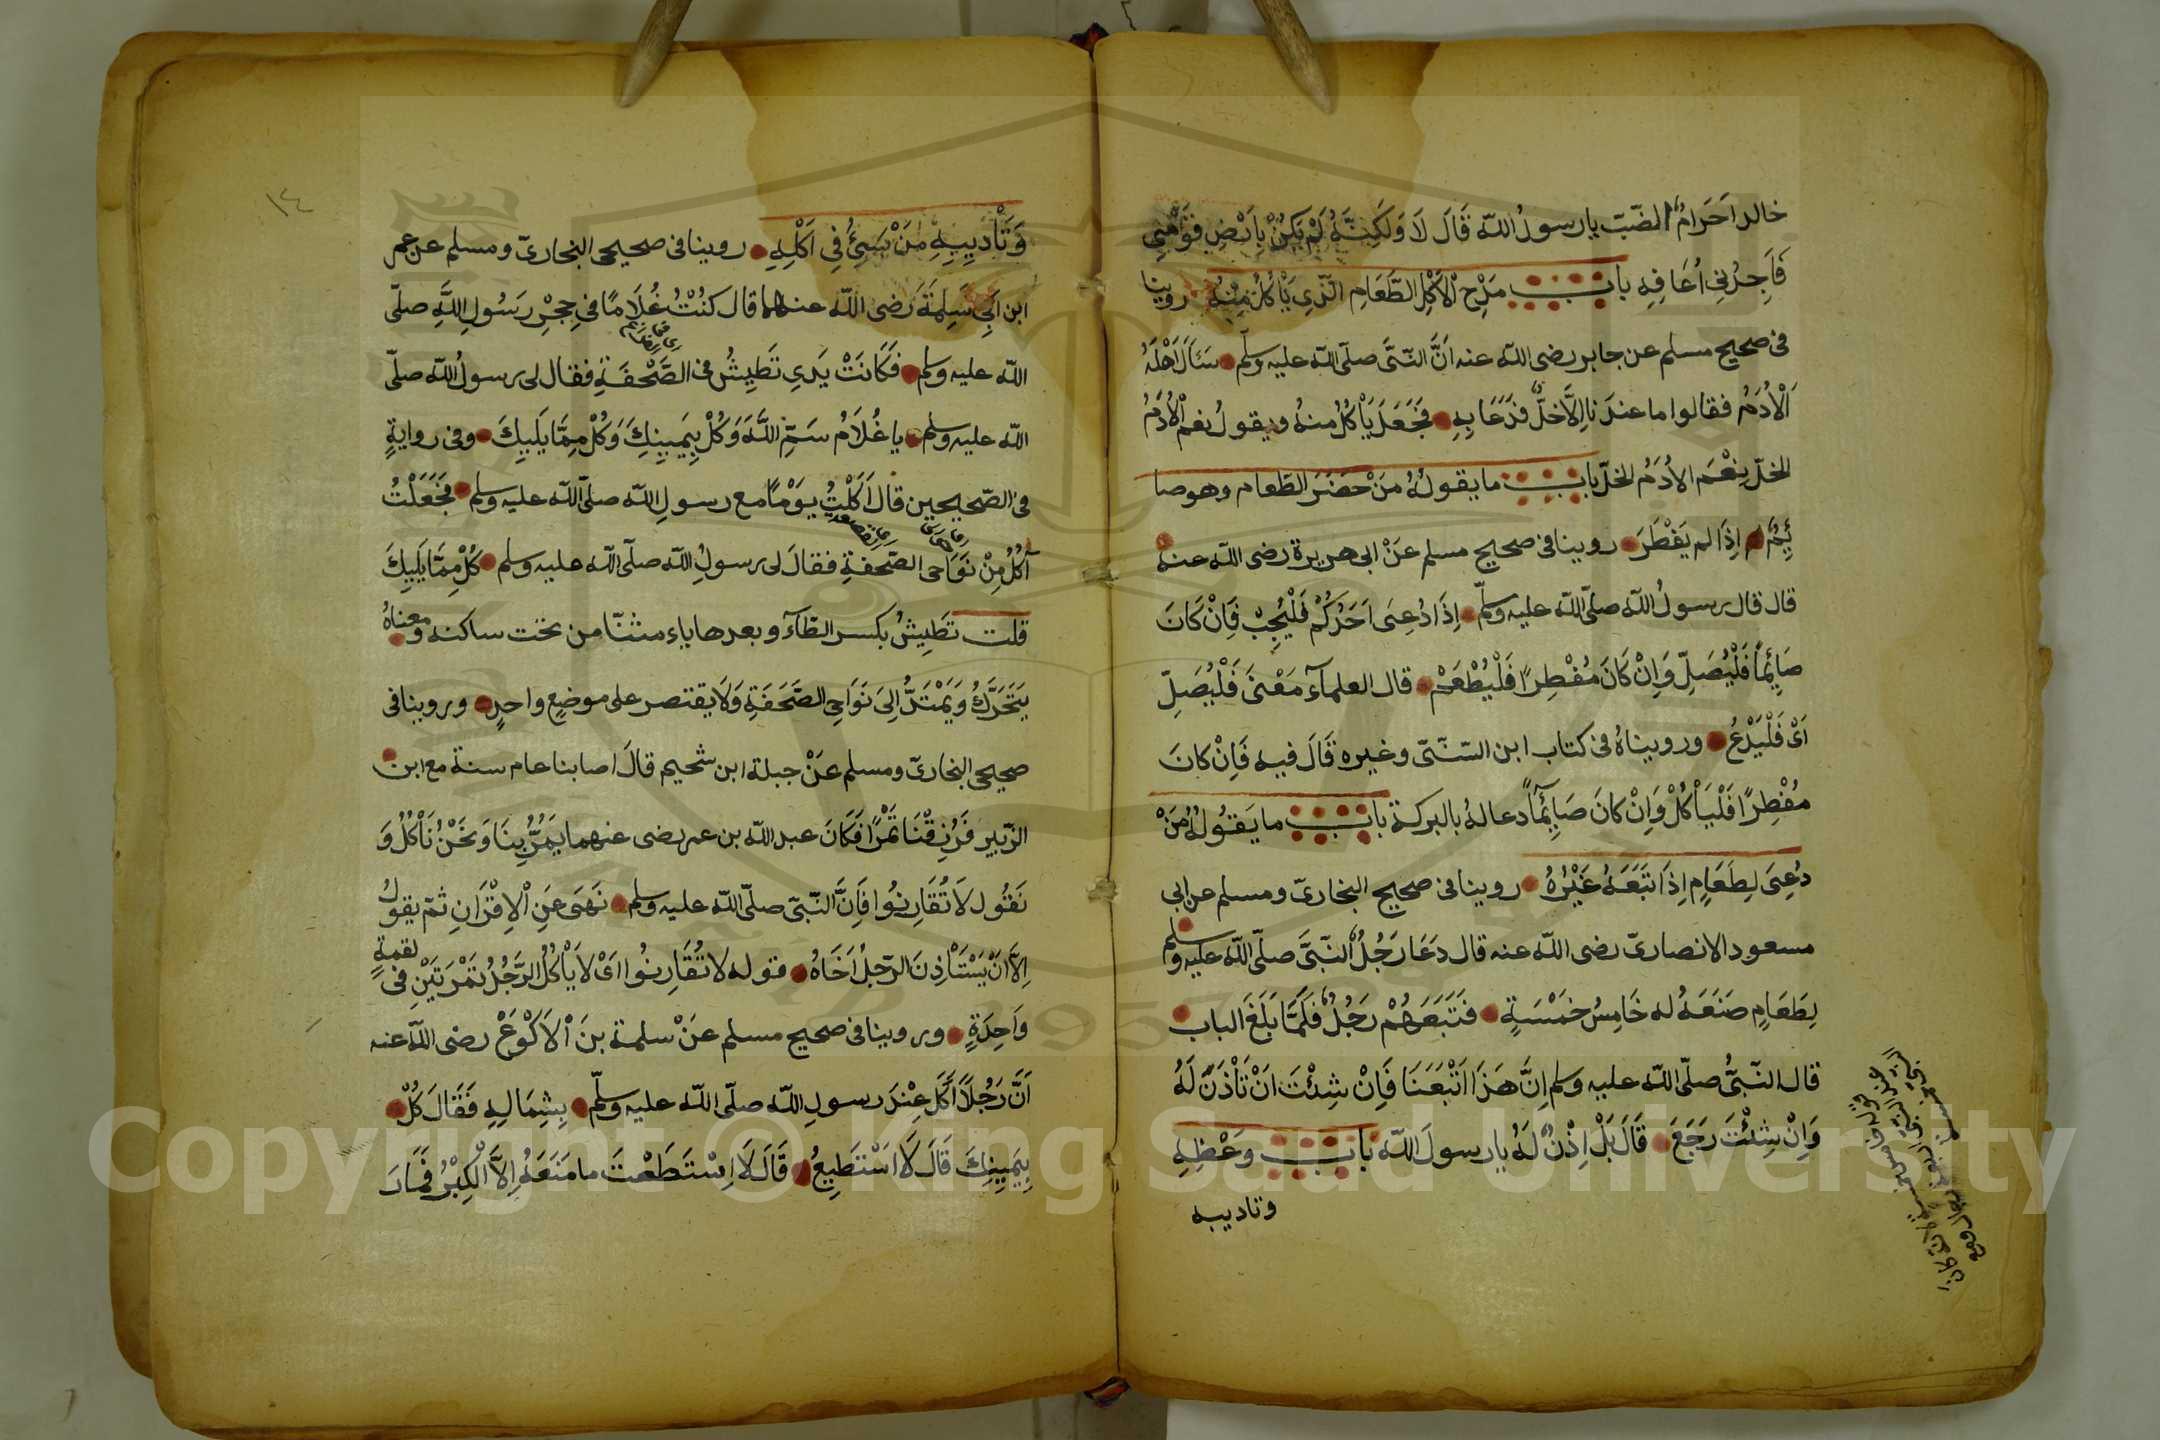 خالد اَحَرَامٌ الضّبّ يا رسولُ اللّه قَالَ لَا وَلَكِنَّهُ لَمْ يَكُنْ بِاَرْضِ قَوْمِي
فَاَجِدُنِي اُعَافِهِ بابــ مَدْحِ الْآكِلِ الطَّعَامِ الّذِي يَأْكُلُ مِنْهُ روينا
فى صحيح مسلم عن جابر رضى اللّه عنه اَنَّ النّبىَّ صلّى اللّه عليه وسلّم سَأَلَ اَهْلَهُ
اَلْاُدَمُ فقالوا ما عندَنا اِلَّا خلٌّ فدَعَا بِهِ فَجَعَلَ يَأْكُلُ منهُ ويقولُ نِعْم الْاُدَمُ
الخلّ نِعْمَ الاُدَمُ الخلّ بابــ ما يقولُهُ مَنْ حَضَرَ الطّعام وهو صا
ئِمٌ اِذَا لم يَفْطَرَ روينا فى صحيح مسلم عَنْ ابى هريرة رضى اللّه عنه
قال قال رسولُ اللّه صلّى اللّه عليه وسلّم اِذَا دُعِىَ اَحَدُكُمْ فَلْيُجِبْ فَاِنْ كَانَ
صَائِمًا فَلْيُصَلِّ وَاِنْ كَانَ مُفْطِرًا فَلْيُطْعَمْ قال العلمآء مَعْنَى فَلْيُصَلِّ
اَىْ فَلْيَدْعُ وروينَاهُ فى كتاب ابن السّنّىّ وغيره قَالَ فيه فَاِنْ كانَ
مُفْطِرًا فَلْيَأْكُلْ وَاِنْ كانَ صَائِمًا دعا لهُ بالبركة بابــ ما يَقُولُهُ مَنْ
دُعِىَ لِطَعَامٍ اِذَا تَبَعَهُ غَيْرُهُ روينا فى صحيح البخارىّ ومسلم عن ابى
مسعود الانصارىّ رضى اللّه عنه قال دَعَا رَجُلٌ النّبىَّ صلّى اللّه عليه وسلم
لِطَعَامٍ صَنَعَهُ له خَامِسُ خمْسَةٍ فَتَبَعَهُمْ رَجُلٌ فَلَمَّا بَلَغَ الباب
قال النّبىُّ صلّى اللّه عليه وسلم اِنَّ هَذَا اتْبَعَنَا فَاِنْ شِئْتَ اَنْ تَأْذَنَ لَهُ
وَاِنْ شِئْتَ رَجَعَ قَالَ بَلْ اِذْنٌ لَهُ يا رسولَ اللّه بابــ وَعْظِهِ
وتاديبه
١٤
وَتَأْدِيبِهِ مَنْ يَسِئُ فِي اَكْلِهِ روينا فى صحيحى البخارىّ ومسلم عن عمر
ابن اَبِي سَلِمَةَ رضى اللّه عنهما قال كنتُ غُلَامًا فى حِجْرِ رَسُولِ اللّهِ صلّى
اللّه عليه وسلم فَكَانَتْ يَدِي تَطِيشُ فى الصَّحْفَةِ فقال لى رسولُ اللّه صلّى
اللّه عليه وسلم يا غُلَامُ سَمِّ اللّهَ وَكُلْ بِيَمِينِكَ وَكُلْ مِمَّا يَلِيكَ وفى روايةٍ
فى الصّحيحين قالَ اَكَلْتُ يوَمًا مع رسولِ اللّه صلّى اللّه عليه وسلم فَجَعَلْتُ
آكُلُ مِنْ نَوَاحى الصّحفةِ فقالَ لى رسولُ اللّه صلّى اللّه عليه وسلم كُلْ مِمَّا يَلِيكَ
قلت تَطِيشُ بكسر الطّآءِ وبعدها ياء مثنّا من تحت ساكنه ومعناهُ
يَتَحَرَّكُ وَيَمْتَدُّ اِلىَ نَوَاحِى الصَّحَفَةِ وَلَا يقتصر على موضعٍ واحدٍ وروينا فى
صحيحى البخارىّ ومسلم عَنْ جبلة ابن سُحيم قالَ اصابنا عام سنة مع ابن
الزّبير فَرُزِقْنَا تَمْرًا فَكَانَ عبد اللّه بن عمر رضى عنهما يَمُرُّ بِنَا وَنَحْنُ نَأْكُلُ وَ
نَقُول لَا تُقَارِنُوا فَاِنَّ النّبىّ صلّى اللّه عليه وسلم نَهَى عَنِ الْاِقْرَانِ ثمّ يقولُ
اِلّا اَنْ يَسْتَأْذِنَ الرّجلُ اَخَاهُ قوله لا تُقَارِنُوا اَىْ لا يَأْكُلُ الرَّجُلُ تَمْرَتَيْنِ فى لقمةٍ
وَاحِدَةٍ وروينا فى صحيح مسلم عَنْ سلمة بنَ الْاَكْوَعْ رضى اللّه عنه
اَنَّ رَجُلًا اَكَلَ عِنْدَ رسولِ اللّه صلّى اللّه عليه وسلّم بِشِمَالِهِ فَقَالَ كُلْ
بِيَمِينِكَ قَالَ لَا اَسْتَطِيعُ قَالَ لَا اِسْتَطَعْتَ ما مَنَعَهُ اِلّا الْكِبْرُ فَمَا رَ
Copyright © King Saud University
1957